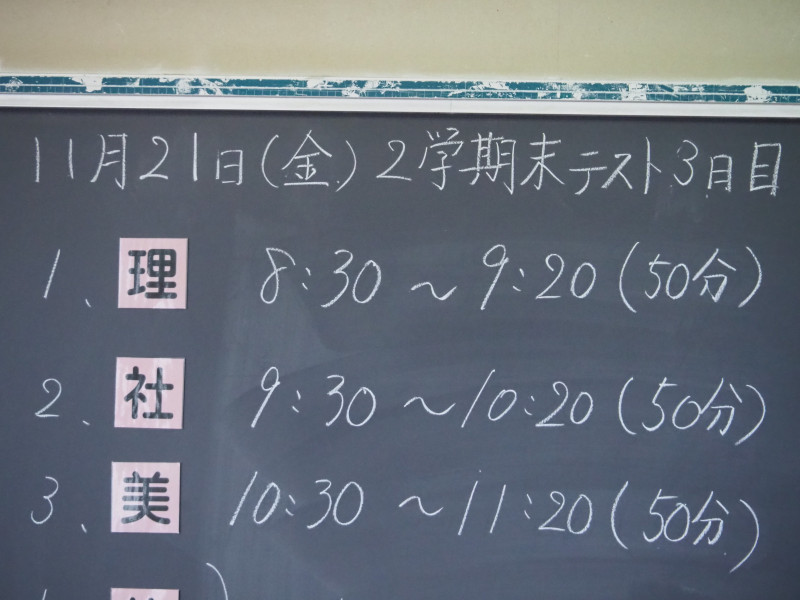 11月21日(金)2学期末テスト3日目
1、理 8:30〜9:20(50分)
2、社 9:30〜10:20(50分)
3、美 10:30〜11:20(50分)